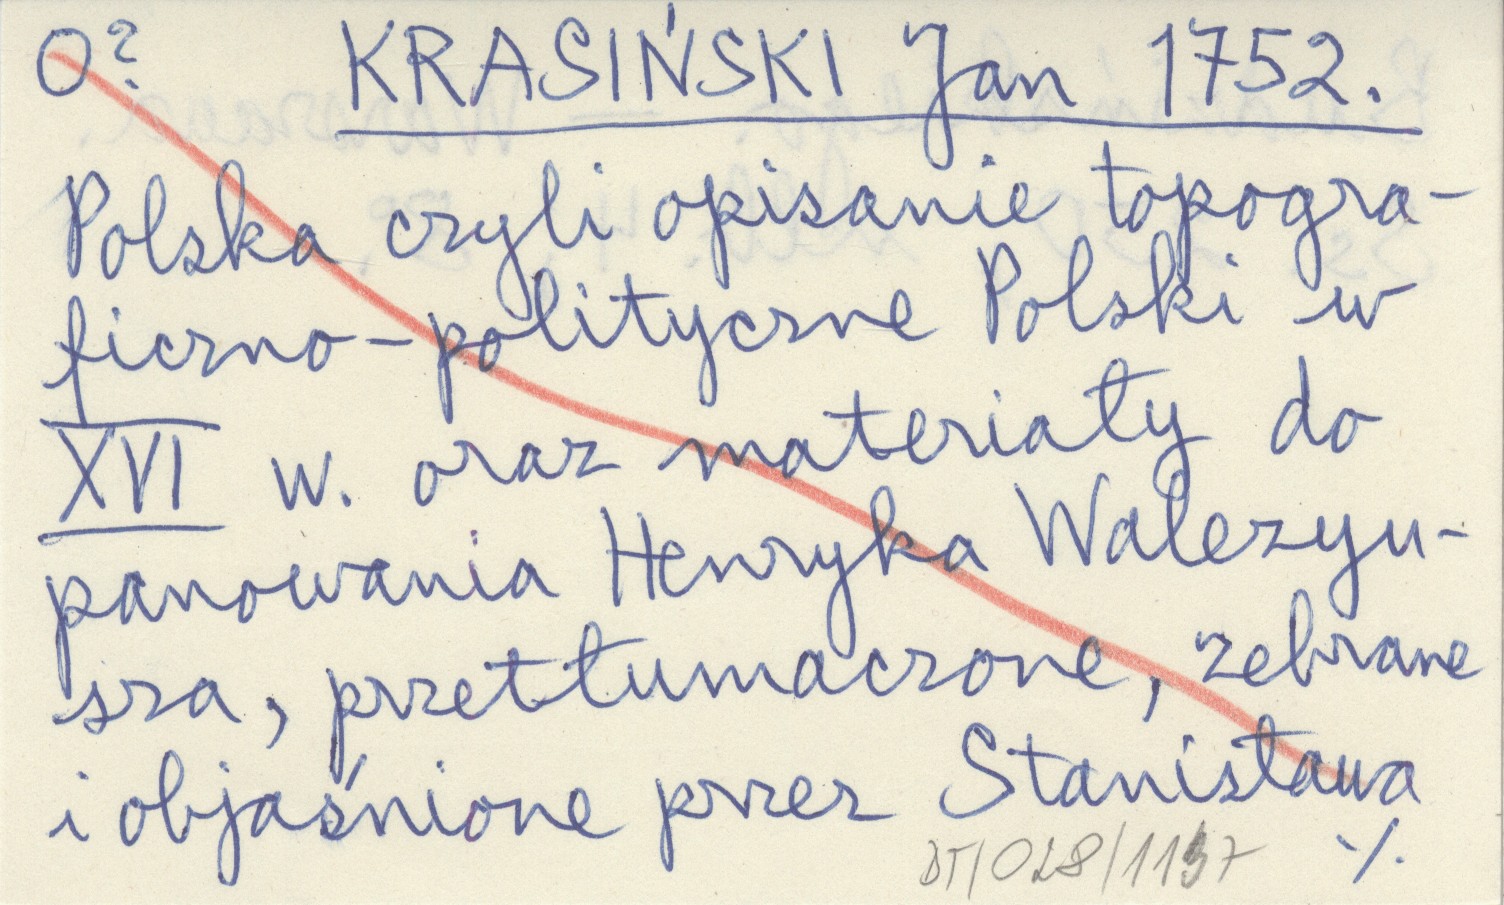 O? KRASIŃSKI Jan 1752.
Polska czyli opisanie topogra-
ficzno-polityczne Polski w
XVI w. oraz materiały do
panowania Henryka Walezyu-
sza, przetłumaczone, zebrane
i objaśnione przez Stanisława
DT/028/1157 ./.